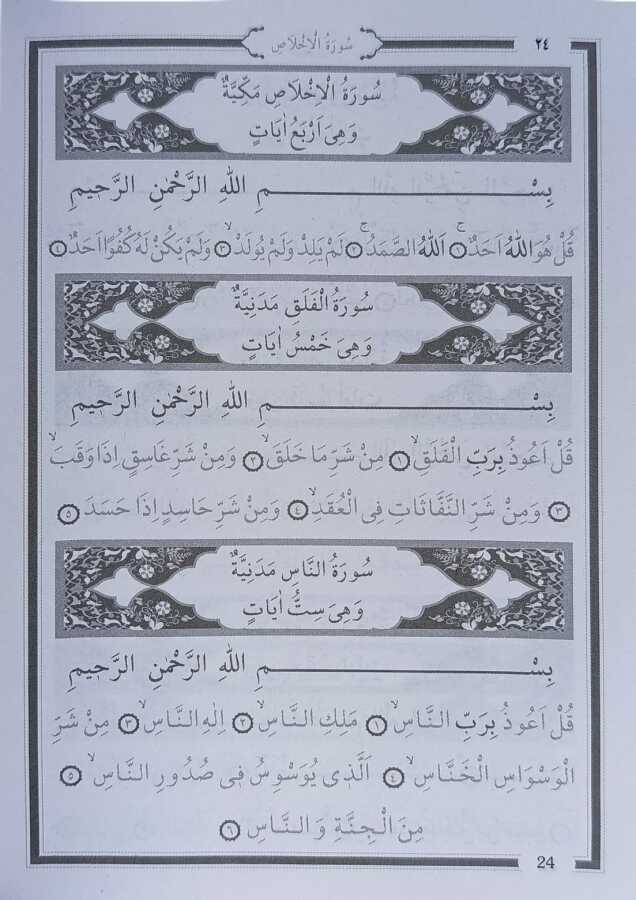 ٢٤ سُورَةُ الْاِخْلَاصِ
سُورَةُ الْاِخْلَاصِ مَكِّيَّةٌ
وَهِىَ اَرْبَعُ اٰيَاتٍ
بِسْــــــــــــــــــمِ اللهِ الرَّحْمٰنِ الرَّحٖيمِ
قُلْ هُوَ اللهُ اَحَدٌۚ ﴿١﴾ اَللهُ الصَّمَدُۚ ﴿٢﴾ لَمْ يَلِدْ وَلَمْ يُولَدْۙ ﴿٣﴾ وَلَمْ يَكُنْ لَهُ كُفُوًا اَحَدٌ ﴿٤﴾
سُورَةُ الْفَلَقِ مَدَنِيَّةٌ
وَهِىَ خَمْسُ اٰيَاتٍ
بِسْــــــــــــــــــمِ اللهِ الرَّحْمٰنِ الرَّحٖيمِ
قُلْ اَعُوذُ بِرَبِّ الْفَلَقِۙ ﴿١﴾ مِنْ شَرِّ مَا خَلَقَۙ ﴿٢﴾ وَمِنْ شَرِّ غَاسِقٍ اِذَا وَقَبَۙ
﴿٣﴾ وَمِنْ شَرِّ النَّفَّاثَاتِ فِى الْعُقَدِۙ ﴿٤﴾ وَمِنْ شَرِّ حَاسِدٍ اِذَا حَسَدَ ﴿٥﴾
سُورَةُ النَّاسِ مَدَنِيَّةٌ
وَهِىَ سِتُّ اٰيَاتٍ
بِسْــــــــــــــــــمِ اللهِ الرَّحْمٰنِ الرَّحٖيمِ
قُلْ اَعُوذُ بِرَبِّ النَّاسِۙ ﴿١﴾ مَلِكِ النَّاسِۙ ﴿٢﴾ اِلٰهِ النَّاسِۙ ﴿٣﴾ مِنْ شَرِّ
الْوَسْوَاسِ الْخَنَّاسِۙ ﴿٤﴾ اَلَّذٖى يُوَسْوِسُ فٖى صُدُورِ النَّاسِۙ ﴿٥﴾
مِنَ الْجِنَّةِ وَالنَّاسِ ﴿٦﴾
24